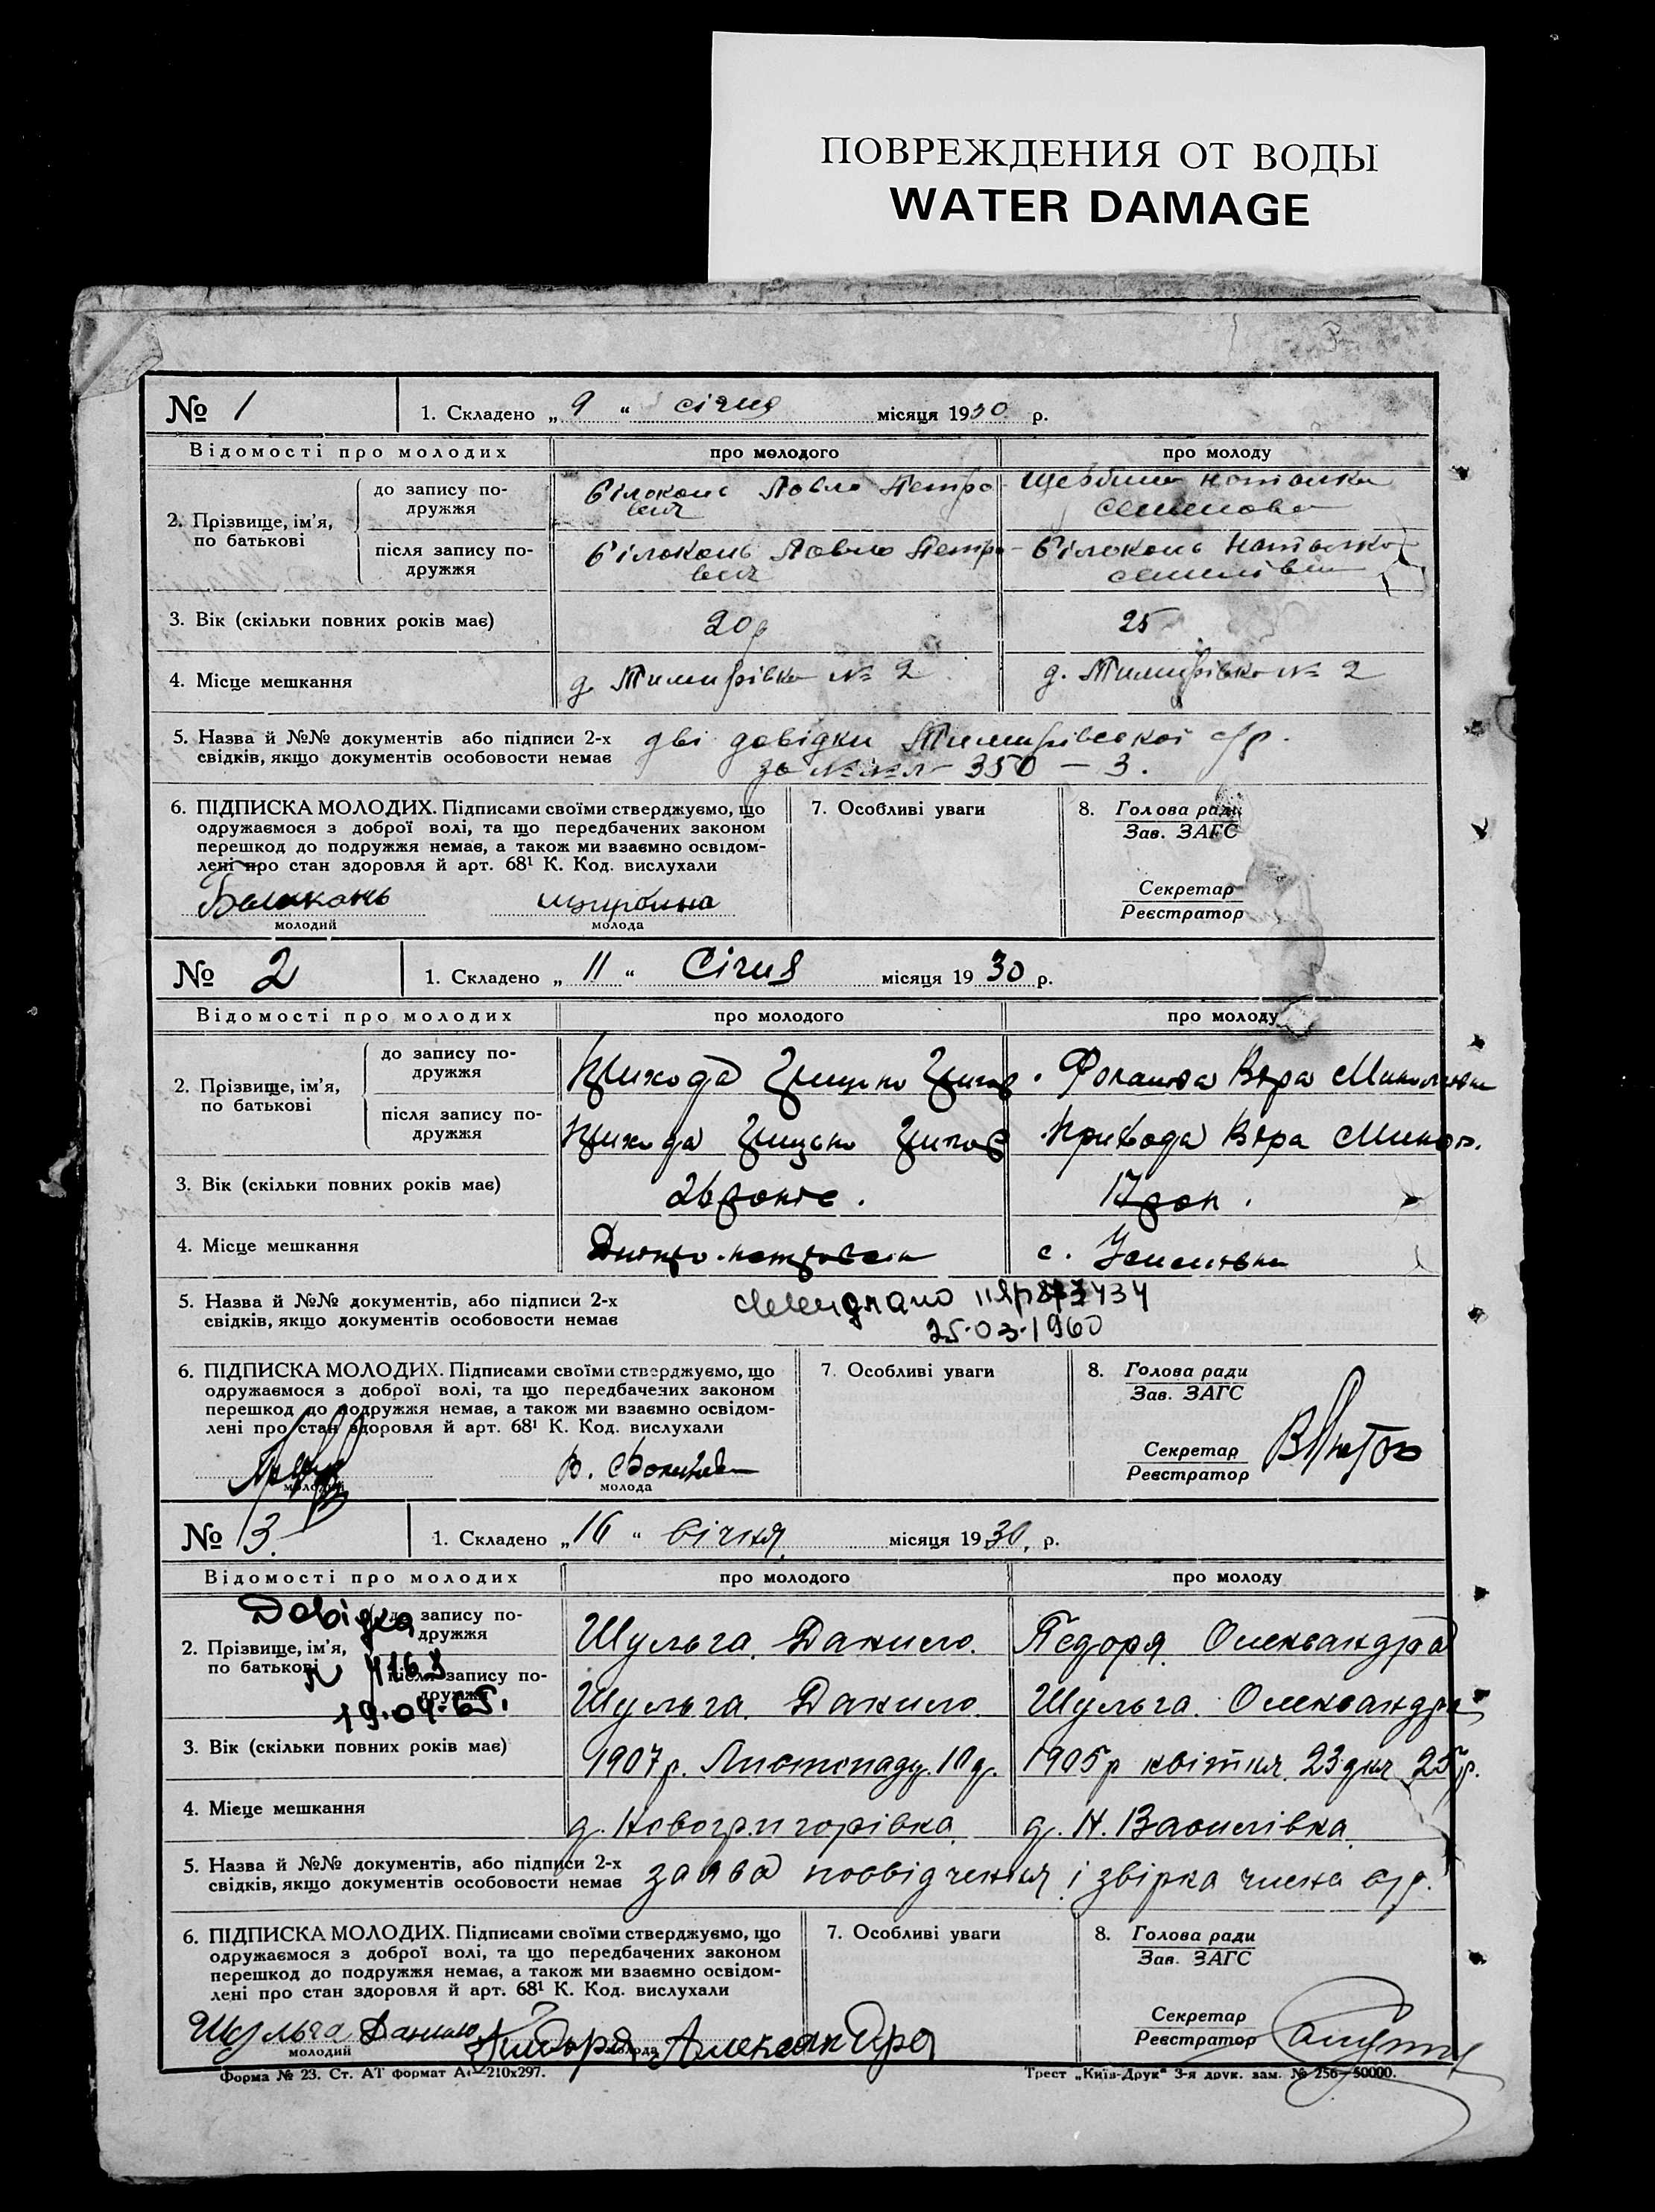 ПОВРЕЖДЕНИЯ ОТ ВОДЫ
WATER DAMAGE
№ 1
1. Складено „ 9 “ січня місяця 1930 р.
Відомості про молодих
про молодого
про молоду
2. Прізвище, ім’я, по батькові
до запису по-
дружжя
Білоконь Павло Петро-
вич
Щербина Наталка
Семенова
після запису по-
дружжя
Білоконь Павло Петро-
вич
Білоконь Наталка
Семенівна
3. Вік (скільки повних років має)
20 р
25
4. Місце мешкання
д. № 2
д. № 2
5. Назва й №№ документів або підписи 2-х
свідків, якщо документів особовости немає
дві довідки с/р.
за 350 – 3.
6. ПІДПИСКА МОЛОДИХ. Підписами своїми стверджуємо, що
одружаємося з доброї волі, та що передбачених законом
перешкод до подружжя немає, а також ми взаємно освідом-
лені про стан здоровля й арт. 68¹ К. Код. вислухали
молодий
молода
7. Особливі уваги
8. Голова ради
Зав. ЗАГС
Секретар
Реєстратор
№ 2
1. Складено „ 11 “ Січня місяця 1930 р.
Відомості про молодих
про молодого
про молоду
2. Прізвище, ім’я,
по батькові
до запису по-
дружжя
Прихода Грицько Григор.
Вера Миколаївна
після запису по-
дружжя
Прихода Грицько Григор
Прихода Вера Микол.
3. Вік (скільки повних років має)
26
17
4. Місце мешкання
с.
5. Назва й №№ документів, або підписи 2-х
свідків, якщо документів особовости немає
25.03.1960
6. ПІДПИСКА МОЛОДИХ. Підписами своїми стверджуємо, що
одружаємося з доброї волі, та що передбачених законом
перешкод до подружжя немає, а також ми взаємно освідом-
лені про стан здоровля й арт. 68¹ К. Код. вислухали
молодий
молода
7. Особливі уваги
8. Голова ради
Зав. ЗАГС
Секретар
Реєстратор
№ 3.
1. Складено „ 16 “ січня місяця 1930, р.
Відомості про молодих
про молодого
про молоду
Довідка
2. Прізвище, ім’я,
по батькові
до запису по-
дружжя
Шульга Данило.
Педоря Олександра
після запису по-
дружжя
19.04.65.
Шульга Данило.
Шульга Олександра
3. Вік (скільки повних років має)
1907 р. Листопаду 10 д.
1905 р квітня 23 дня 25 р.
4. Місце мешкання
д. Новогригорівка
д. Н. Василівка
5. Назва й №№ документів, або підписи 2-х
свідків, якщо документів особовости немає
заява посвідчення і звірка члена с/р.
6. ПІДПИСКА МОЛОДИХ. Підписами своїми стверджуємо, що
одружаємося з доброї волі, та що передбачених законом
перешкод до подружжя немає, а також ми взаємно освідом-
лені про стан здоровля й арт. 68¹ К. Код. вислухали
Шульга Данило
Александра
молодий
молода
7. Особливі уваги
8. Голова ради
Зав. ЗАГС
Секретар
Реєстратор
Форма № 23. Ст. АТ формат А₄—210х297.
Трест „Київ-Друк“ 3-я друк. зам. № 256—50000.